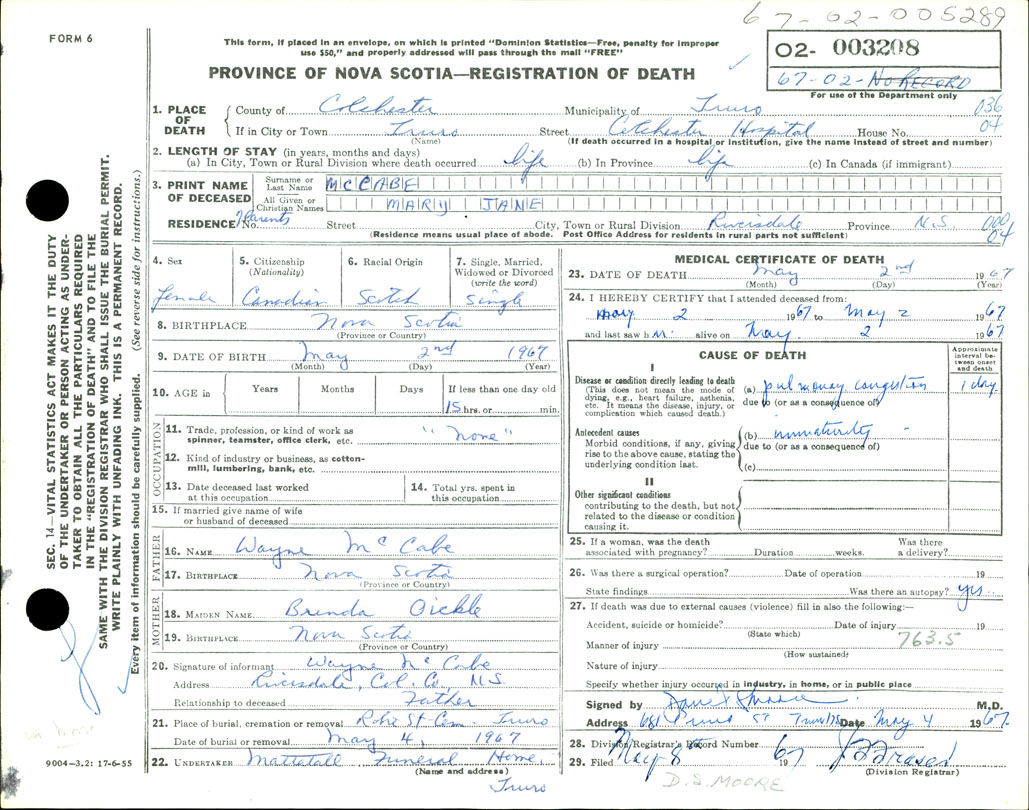 67-02-005289
FORM 6
This form, if placed in an envelope, on which is printed "Dominion Statistics—Free, penalty for improper
use $50," and properly addressed will pass through the mail "FREE"
O2- 003208
67-02-No RECORD
For use of the Department only
PROVINCE OF NOVA SCOTIA—REGISTRATION OF DEATH
1. PLACE OF DEATH
County of Colchester Municipality of Truro 036
If in City or Town Truro Street Colchester Hospital House No. 04
(Name) (If death occurred in a hospital or institution, give the name instead of street and number)
2. LENGTH OF STAY (in years, months and days)
(a) In City, Town or Rural Division where death occurred life (b) In Province life (c) In Canada (if immigrant)
3. PRINT NAME OF DECEASED
Surname or Last Name McCABE
All Given or Christian Names MARY JANE
RESIDENCE No. Parents Street City, Town or Rural Division Riversdale Province N.S. 000
04
(Residence means usual place of abode. Post Office Address for residents in rural parts not sufficient)
4. Sex
Female
5. Citizenship (Nationality)
Canadian
6. Racial Origin
Scotch
7. Single, Married, Widowed or Divorced (write the word)
Single
8. BIRTHPLACE Nova Scotia
(Province or Country)
9. DATE OF BIRTH May 2nd 1967
(Month) (Day) (Year)
10. AGE in Years Months Days If less than one day old
15 hrs. or min.
OCCUPATION
11. Trade, profession, or kind of work as spinner, teamster, office clerk, etc. "None"
12. Kind of industry or business, as cotton-mill, lumbering, bank, etc.
13. Date deceased last worked at this occupation
14. Total yrs. spent in this occupation
15. If married give name of wife or husband of deceased
FATHER
16. NAME Wayne McCabe
17. BIRTHPLACE Nova Scotia
(Province or Country)
MOTHER
18. MAIDEN NAME Brenda Oickle
19. BIRTHPLACE Nova Scotia
(Province or Country)
20. Signature of informant Wayne McCabe
Address Riversdale, Col. Co., N.S.
Relationship to deceased Father
21. Place of burial, cremation or removal Robie St Cem. Truro
Date of burial or removal May 4, 1967
22. UNDERTAKER Mattatall Funeral Home,
(Name and address)
Truro
MEDICAL CERTIFICATE OF DEATH
23. DATE OF DEATH May 2nd 1967
(Month) (Day) (Year)
24. I HEREBY CERTIFY that I attended deceased from:
May 2 1967 to May 2 1967
and last saw h alive on May 2 1967
CAUSE OF DEATH
Approximate interval between onset and death
I
Disease or condition directly leading to death
(This does not mean the mode of dying, e.g., heart failure, asthenia, etc. It means the disease, injury, or complication which caused death.)
(a) pulmonary congestion 1 day
due to (or as a consequence of)
Antecedent causes
Morbid conditions, if any, giving rise to the above cause, stating the underlying condition last.
(b) immaturity
due to (or as a consequence of)
(c)
II
Other significant conditions
contributing to the death, but not related to the disease or condition causing it.
25. If a woman, was the death associated with pregnancy? Duration weeks. Was there a delivery?
26. Was there a surgical operation? Date of operation 19
State findings Was there an autopsy? yes
27. If death was due to external causes (violence) fill in also the following:—
Accident, suicide or homicide? Date of injury 19
(State which)
763.5
Manner of injury
(How sustained)
Nature of injury
Specify whether injury occurred in industry, in home, or in public place
Signed by Moore M.D.
Address 681 Prince St Truro NS Date May 4 1967
28. Division Registrar's Record Number
29. Filed May 8 1967
(Division Registrar)
D.S. MOORE
SEC. 14—VITAL STATISTICS ACT MAKES IT THE DUTY
OF THE UNDERTAKER OR PERSON ACTING AS UNDER-
TAKER TO OBTAIN ALL THE PARTICULARS REQUIRED
IN THE "REGISTRATION OF DEATH" AND TO FILE THE
SAME WITH THE DIVISION REGISTRAR WHO SHALL ISSUE THE BURIAL PERMIT.
WRITE PLAINLY WITH UNFADING INK. THIS IS A PERMANENT RECORD.
Every item of information should be carefully supplied. (See reverse side for instructions.)
9004—3.2: 17-6-55